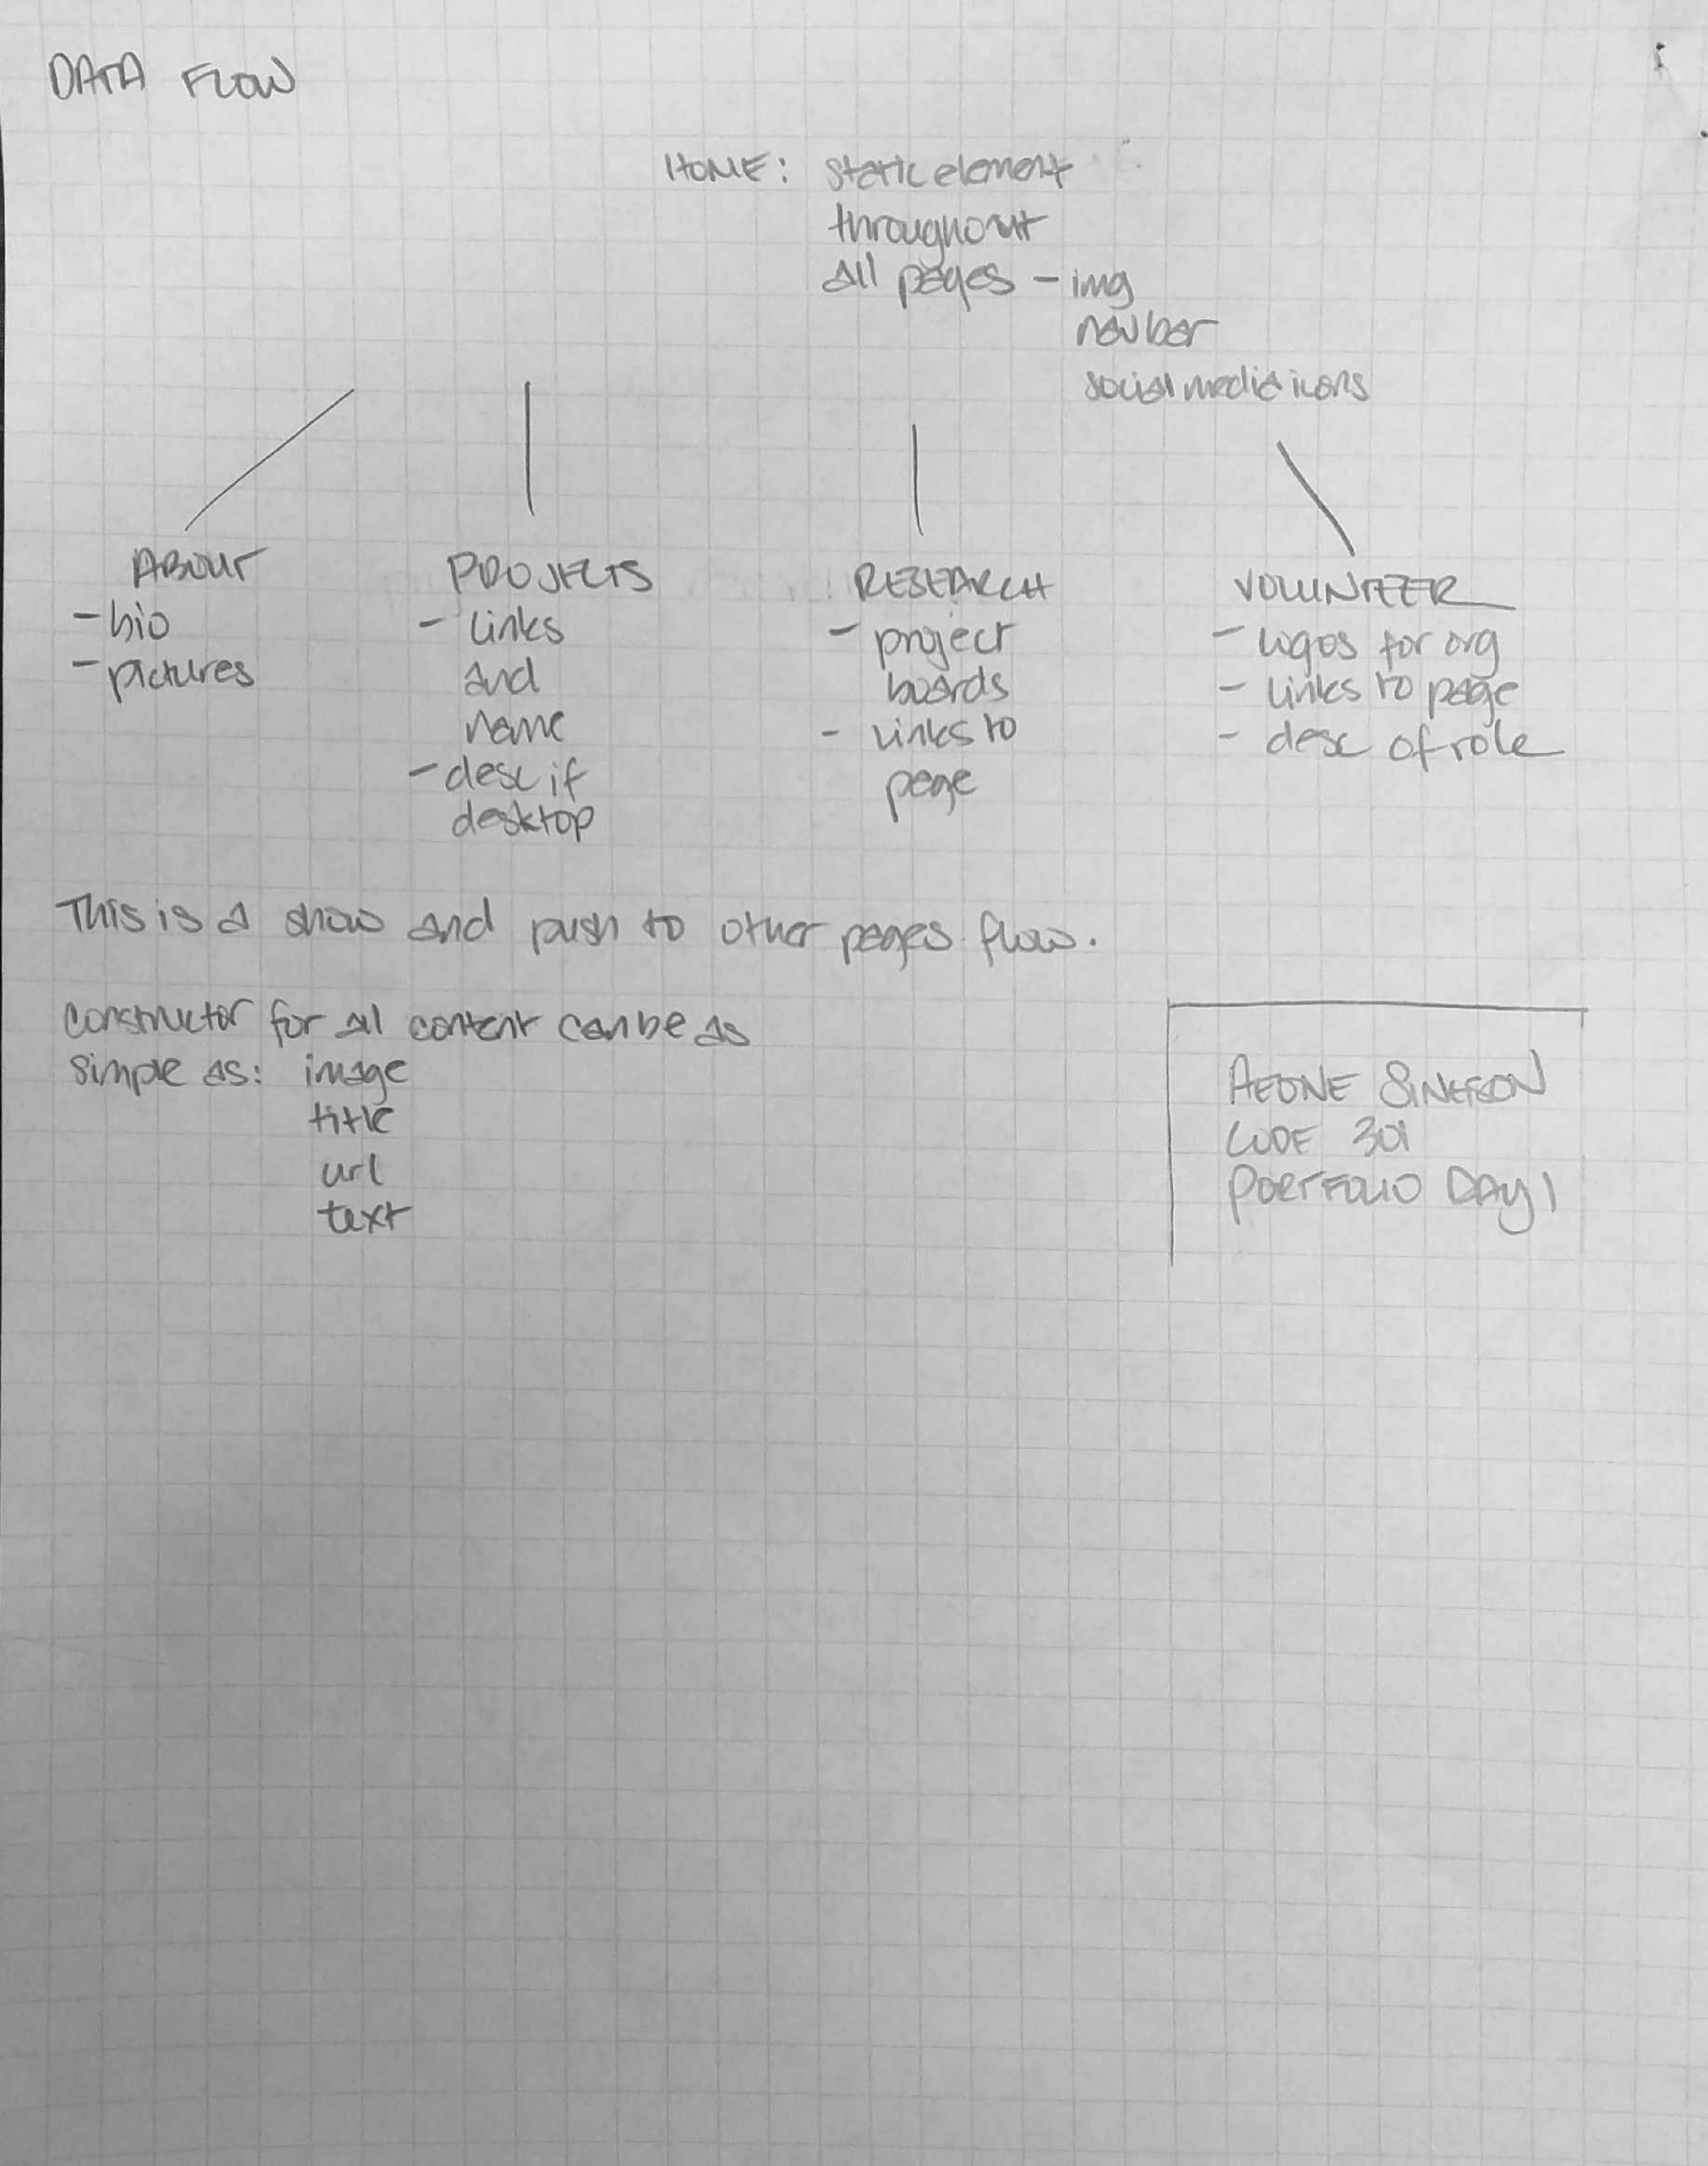 DATA FLOW
HOME: static element
throughout
all pages - img
navbar
social media icons
ABOUT
- bio
- pictures
PROJECTS
- links
and
name
- desc if
desktop
RESEARCH
- project
boards
- links to
page
VOLUNTEER
- logos for org
- links to page
- desc of role
This is a show and push to other pages flow.
constructor for all content can be as
simple as: image
title
url
text
CODE 301
PORTFOLIO DAY 1